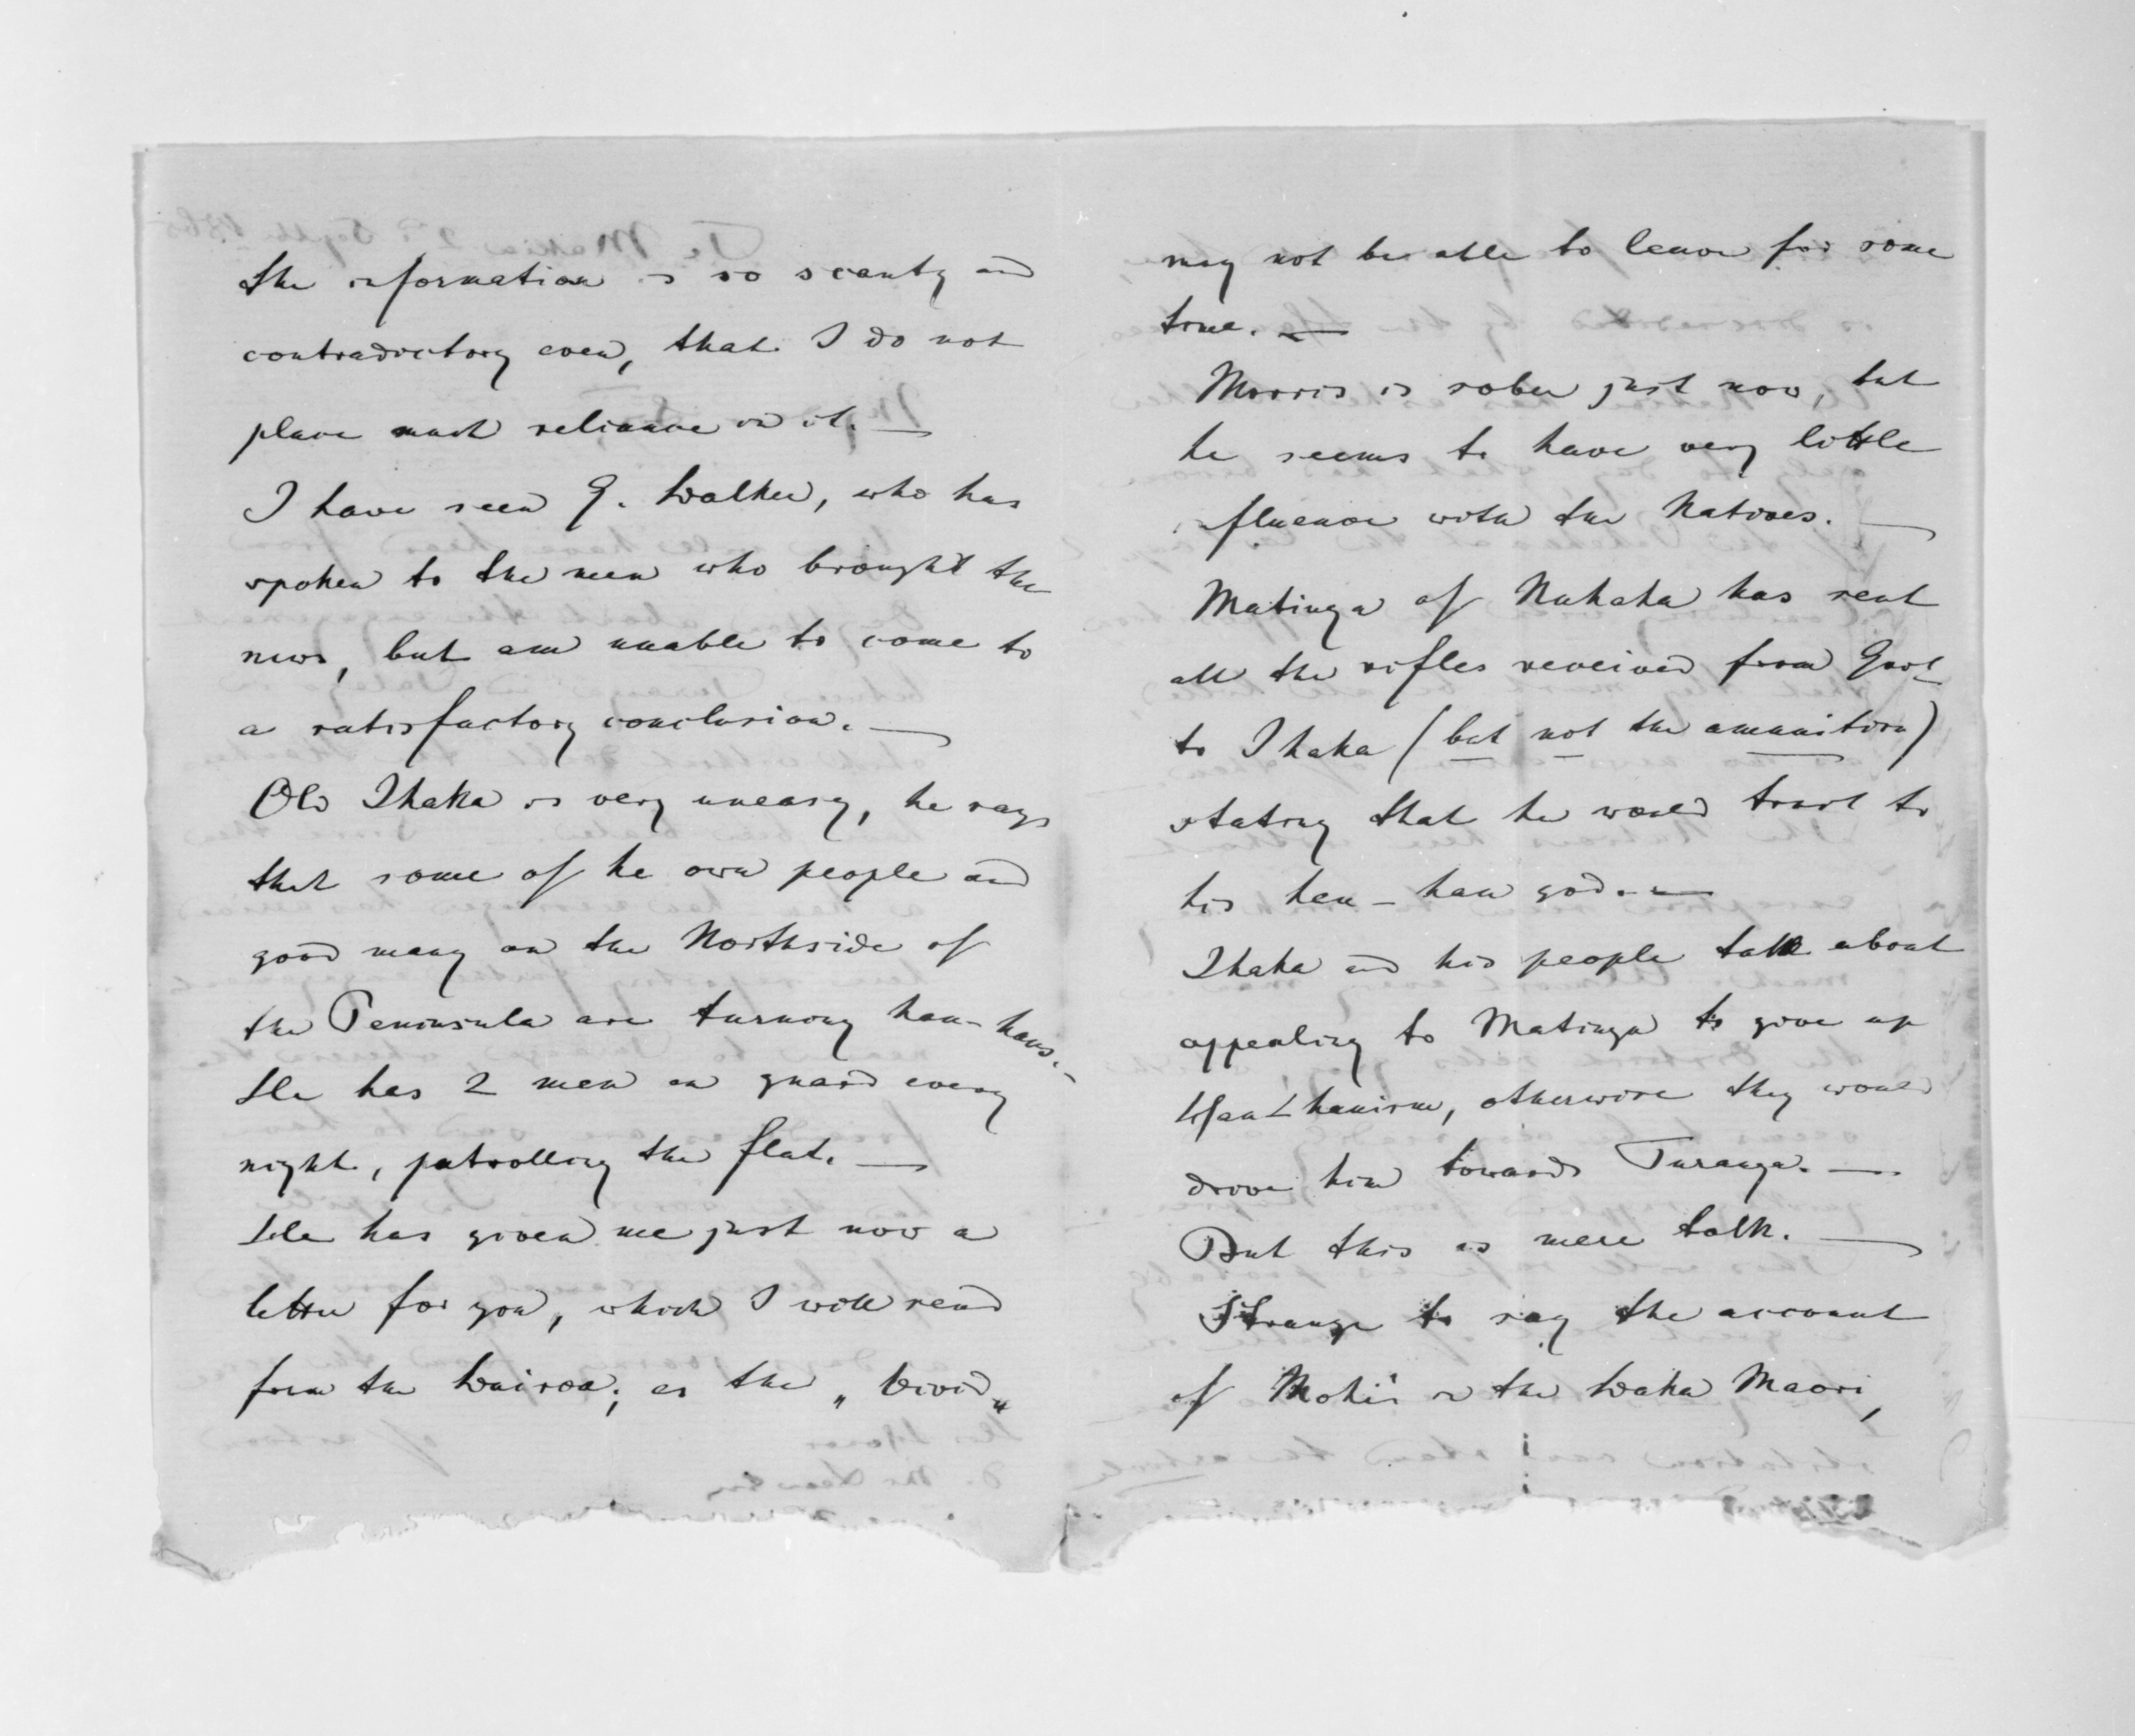 the information is so scanty and
contradictory even, that I do not
place much reliance on it. —
I have seen G. Walker, who has
spoken to the men who brought the
news, but am unable to come to
a satisfactory conclusion. —
Old Ihaka is very uneasy, he says
that some of he own people and
good many on the Northside of
the Peninsula are turning hau-haus. –
He has 2 men on guard every
night, patrolling the flat. —
He has given me just now a
letter for you, which I will send
from the Wairoa; as the „ Vivid „
may not be able to leave for some
time. —
Morris is sober just now, but
he seems to have very little
influence with the Natives. —
Matinga of Nuhaka has sent
all the rifles received from Govt
to Ihaka (but not the amunition)
stating that he would trust to
his hau-hau god. —
Ihaka and his people talk about
appealing to Matinga to give up
Hau-hauism, otherwise they would
drive him towards Turanga. —
But this is mere talk. —
Strange to say the account
of Mohi's in the Waka Maori,